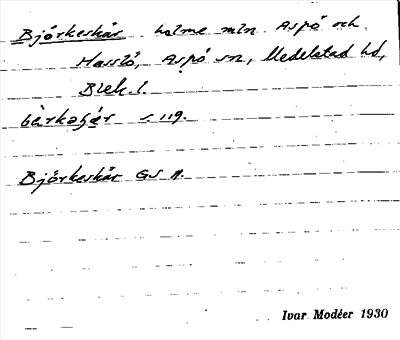 Björkeskär holme mln Aspö och
Hasslö, Aspö sn, Medelstad hd,
Blek. l.
s. 119.
Björkeskär GS A.
Ivar Modéer 1930